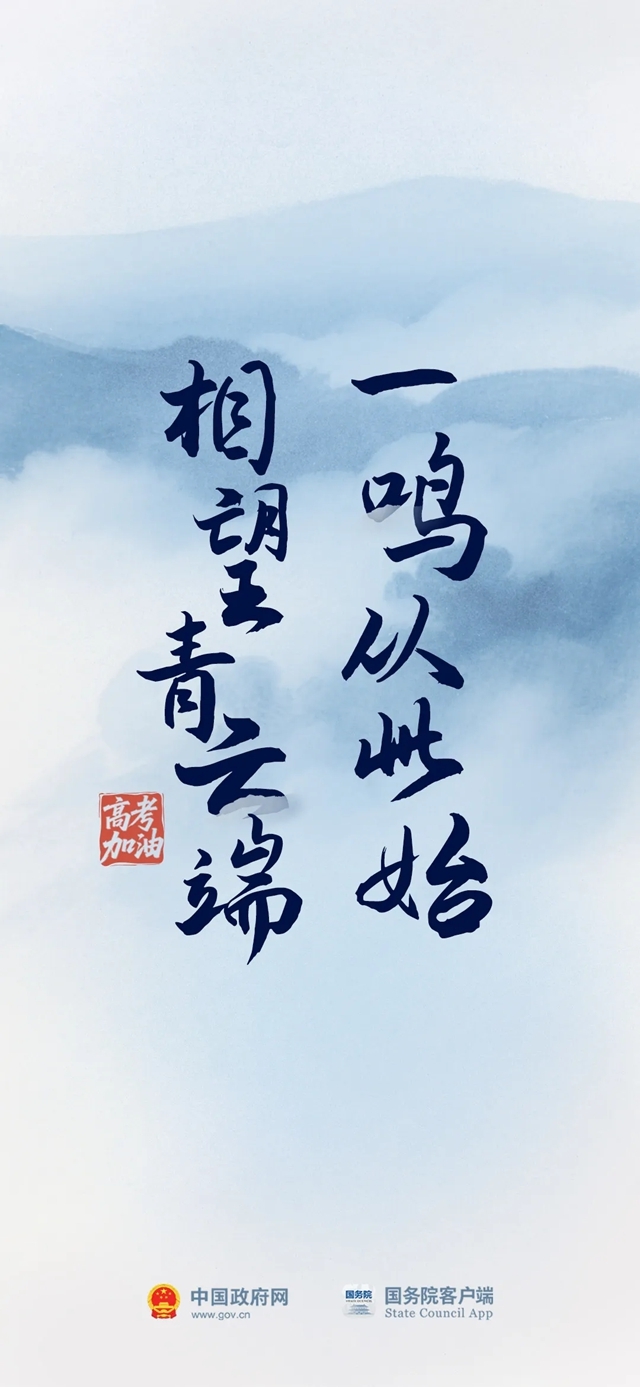 一鸣从此始
相望青云端
高考
加油
中国政府网
www.gov.cn
国务院
国务院客户端
State Council App